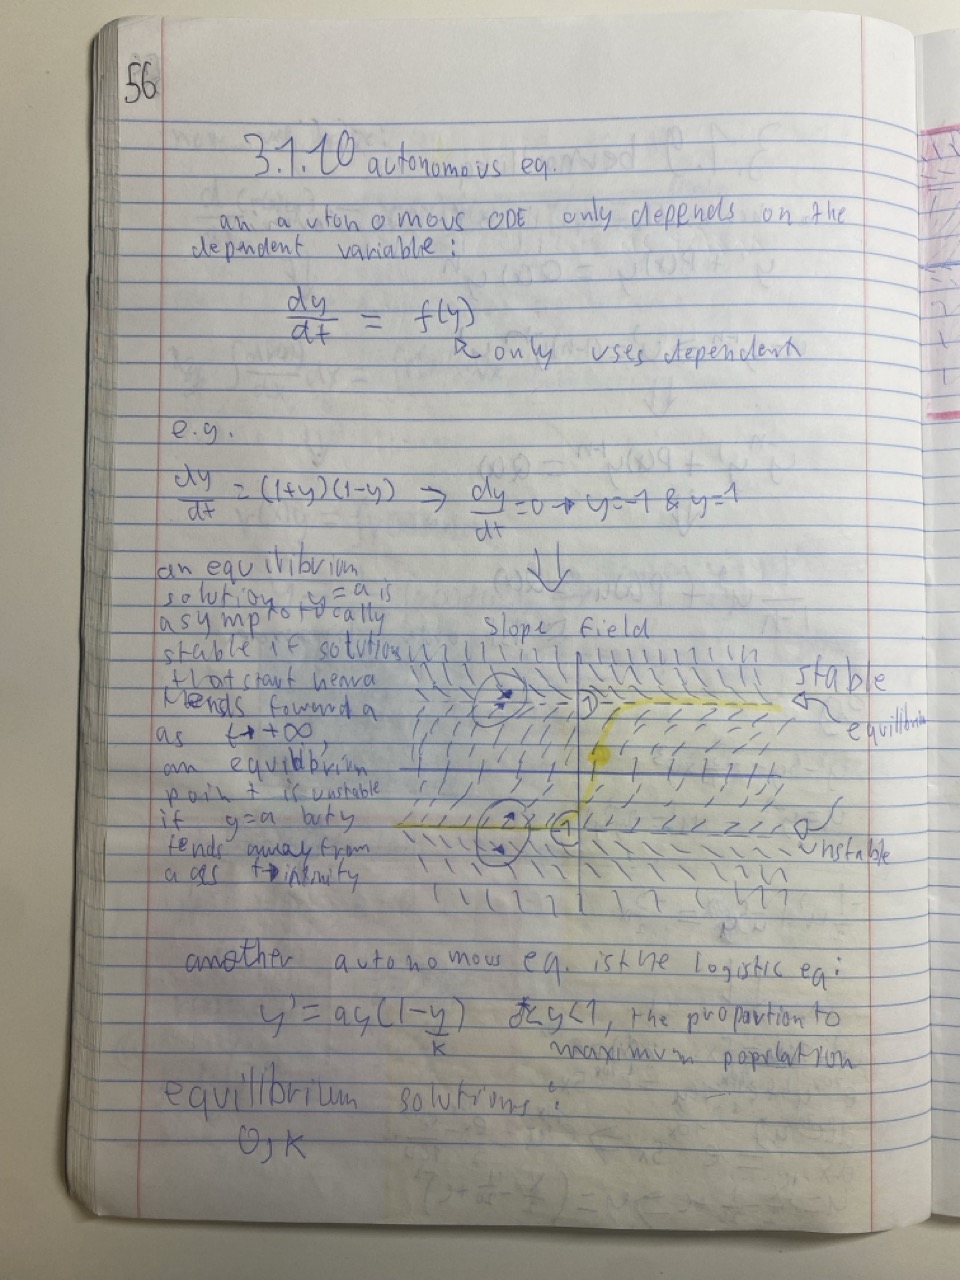 56
3.1.10 autonomous eq.
an autonomous ODE only depends on the
dependent variable:
dy/dt = f(y)
only uses dependent
e.g.
dy/dt = (1+y)(1-y) ⇒ dy/dt = 0 → y=-1 & y=1
an equilibrium
solution y=a is
asymptotically
stable if solutions
that start near a
tends toward a
as t→+∞,
an equilibrium
point is unstable
if y=a but y
tends away from
a as t→infinity
Slope field
stable
equilibrium
1
-1
unstable
another autonomous eq. is the logistic eq:
y' = ay(1-y/K) y<1, the proportion to
maximum population
equilibrium solutions:
0, K